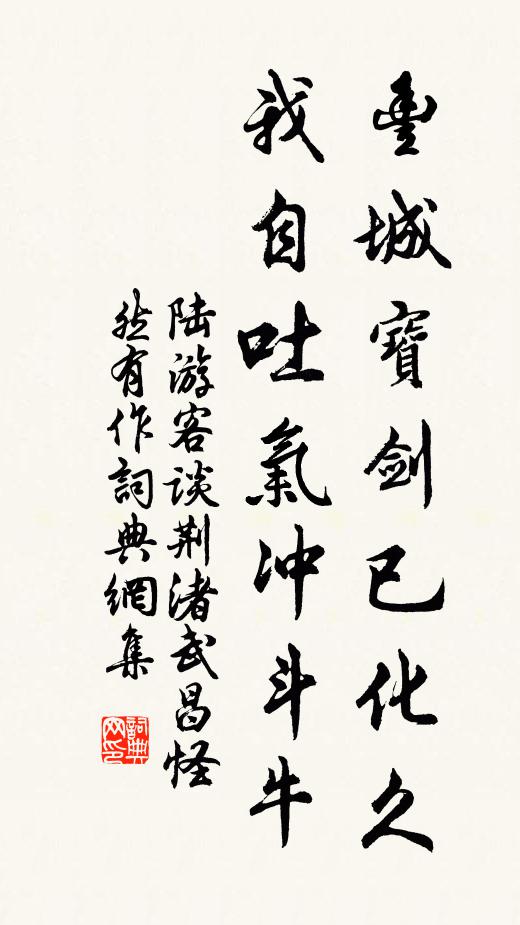 豐城寶劍已化久
我自吐氣冲斗牛
陆游客谈荆渚武昌怪
然有作詞典網集
詞典网印